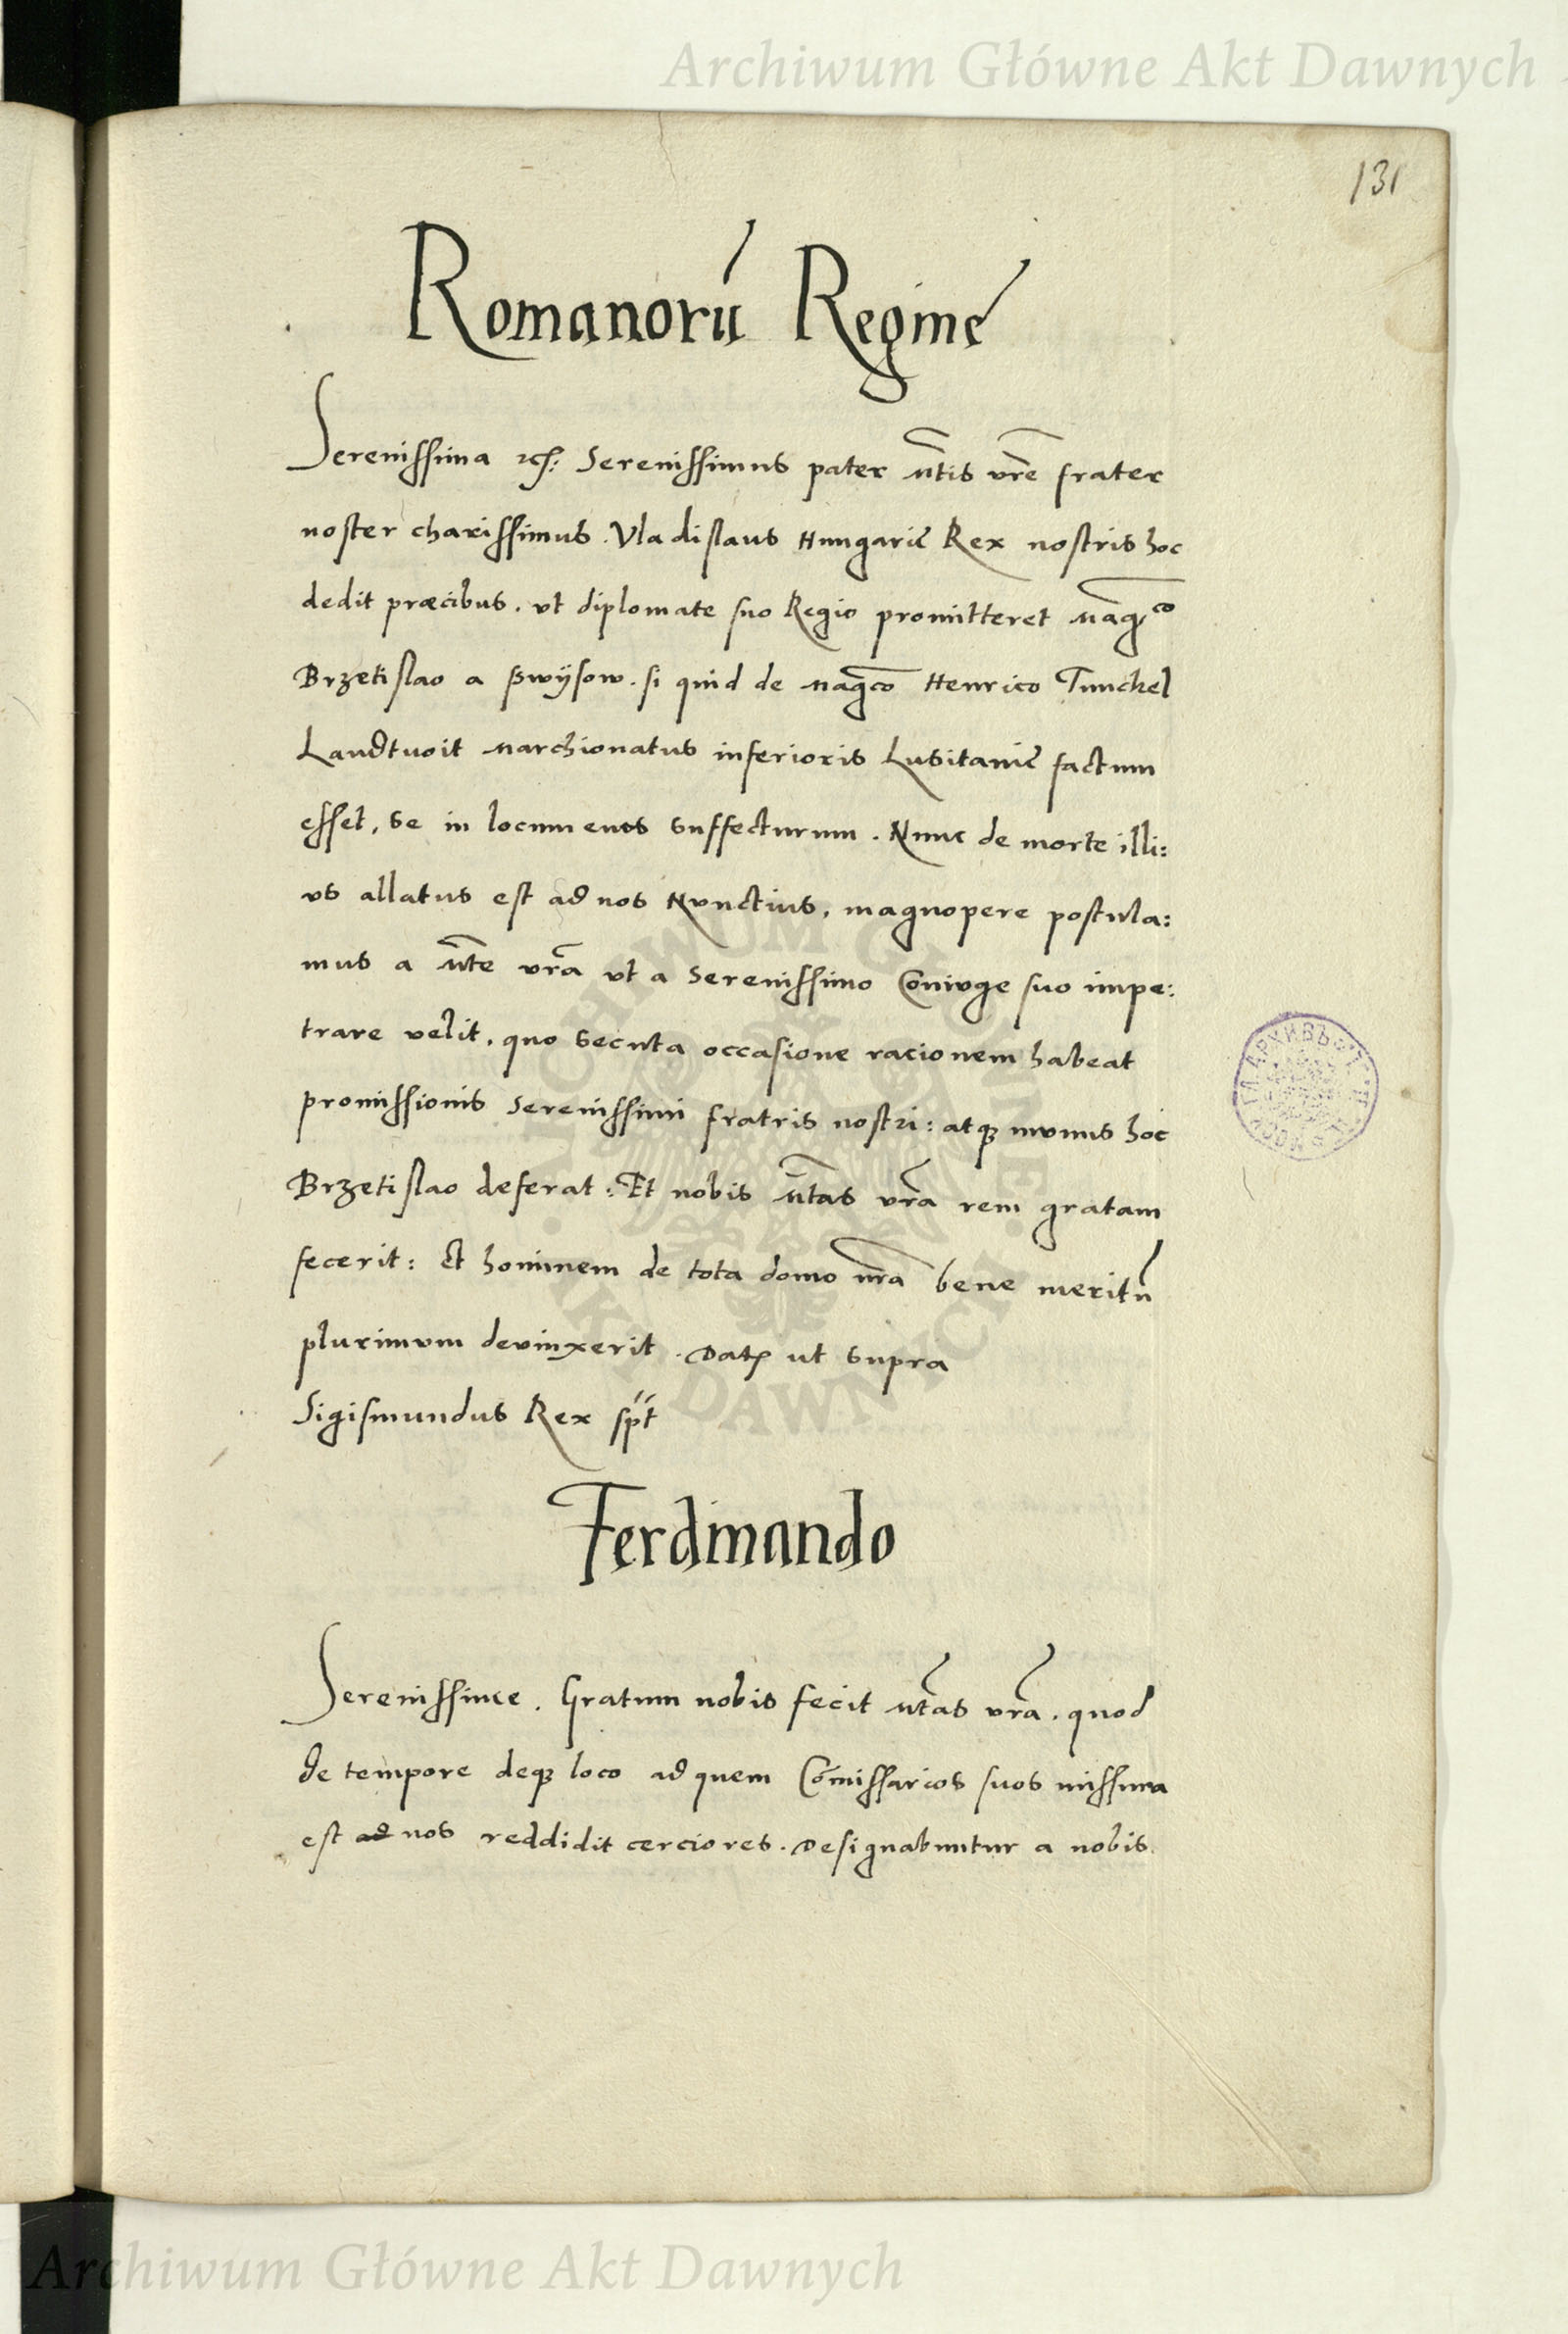 Archiwum Główne Akt Dawnych
131
Romanorū Reginę
Serenissima etc: Serenissimus pater Mtis vrē frater
noster charissimus. Vladislaus Hungarię Rex nostris hoc
dedit præcibus. vt diplomate suo Regio promitteret Magco
Brzetislao a Swÿsow. si quid de Magco Henrico Tunckel
Landtvoit Marchionatus inferioris Lusitanię factum
esset, se in locum euos suffecturum. Nunc de morte illi:
us allatus est ad nos Nunctius, magnopere postula:
mus a Mte vra vt a Serenissimo Coniuge suo impe:
trare velit, quo secuta occasione racionem habeat
promissionis Serenissimi fratris nostri: atq3 munus hoc
Brzetislao deferat: Et nobis Mtas vra rem gratam
fecerit: Et hominem de tota domo nra bene meritū
plurimum deuinxerit. Dat ut supra
Sigismundus Rex spt
Ferdinando
Serenissime. Gratum nobis fecit Mtas vra. quod
de tempore deq3 loco ad quem Comissarios suos missura
est ad nos reddidit cerciores. Designabuntur a nobis
ARCHIWUM GŁÓWNE AKT DAWNYCH
Archiwum Główne Akt Dawnych